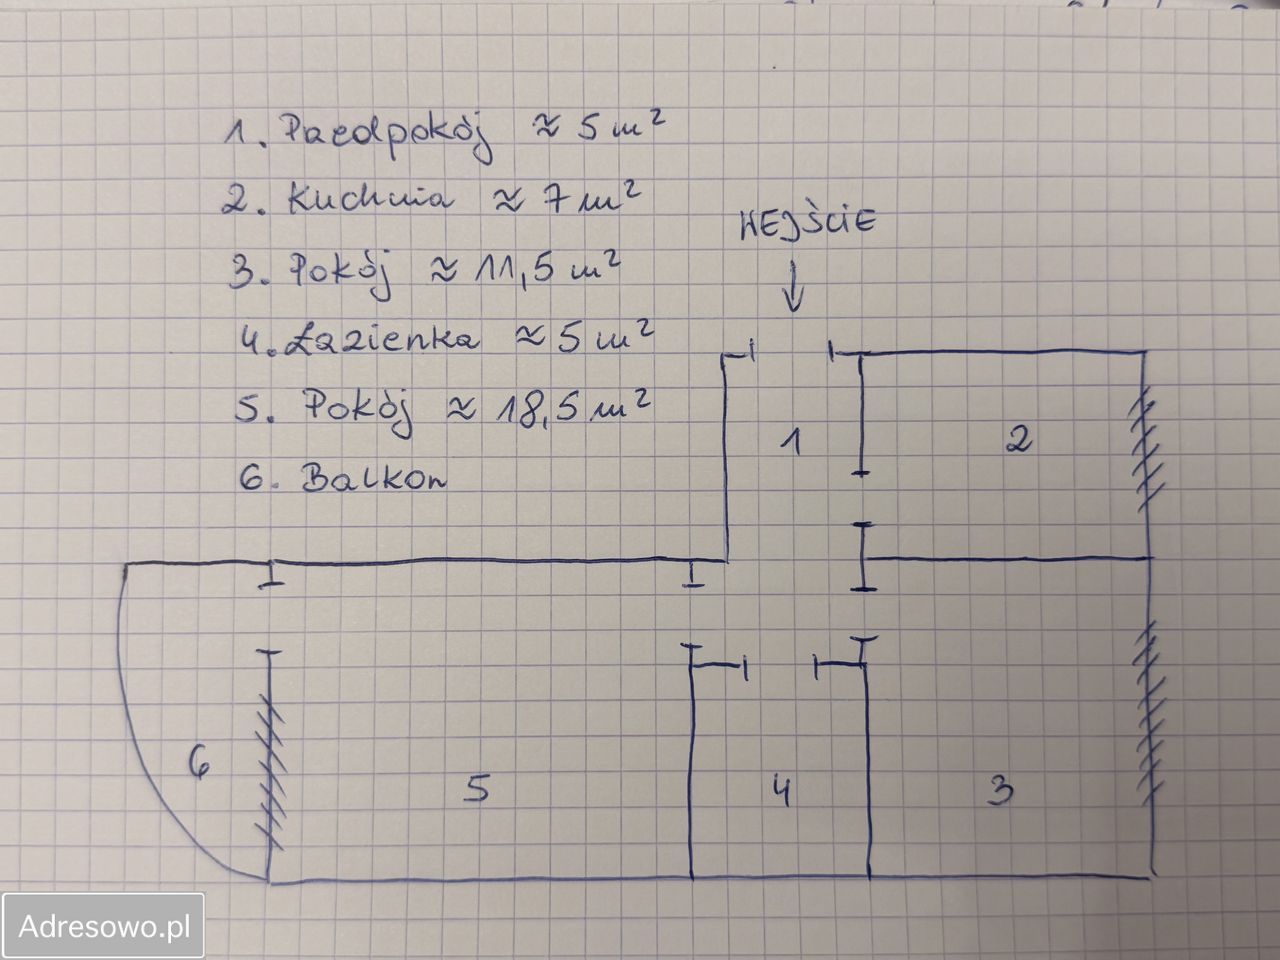 1. Przedpokój ≈ 5 m²
2. Kuchnia ≈ 7 m²
3. Pokój ≈ 11,5 m²
4. Łazienka ≈ 5 m²
5. Pokój ≈ 18,5 m²
6. Balkon
WEJŚCIE
1
2
6
5
4
3
Adresowo.pl